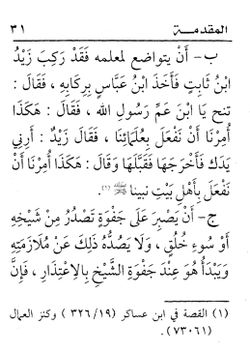 المقدمـــة ٣١
ب– أَنْ يتواضع لمعلمه فَقَدْ رَكِبَ زَيْدُ
ابْنُ ثَابِتٍ فَأَخَذَ ابْنُ عَبَّاسٍ بِرِكَابِهِ ، فَقَالَ :
تنح يا ابن عم رسول الله ، فَقَالَ : هَكَذَا
أُمِرْنَا أَنْ نَفْعَلَ بِعُلَمَائِنَا ، فَقَالَ زَيْدٌ : أَرِنِي
يَدَكَ فَأَخْرَجَهَا فَقَبَّلَهَا وَقَالَ : هَكَذَا أُمِرْنَا أَنْ
نَفْعَلَ بِأَهْلِ بَيْتِ نبينا ﷺ (١).
ج– أَنْ يَصْبِرَ عَلَى جَفْوَةٍ تَصْدُرُ مِنْ شَيْخِهِ
أَوْ سُوءِ خُلُقٍ ، وَلَا يَصُدُّهُ ذَلِكَ عَنْ مُلَازَمَتِهِ
وَيَبْدَأُ هُوَ عِنْدَ جَفْوَةِ الشَّيْخِ بِالِاعْتِذَارِ ، فَإِنَّ
(١) القصة في ابن عساكر (١٩/ ٣٢٦ ) وكنز العمال
(٧٣٠٦١).